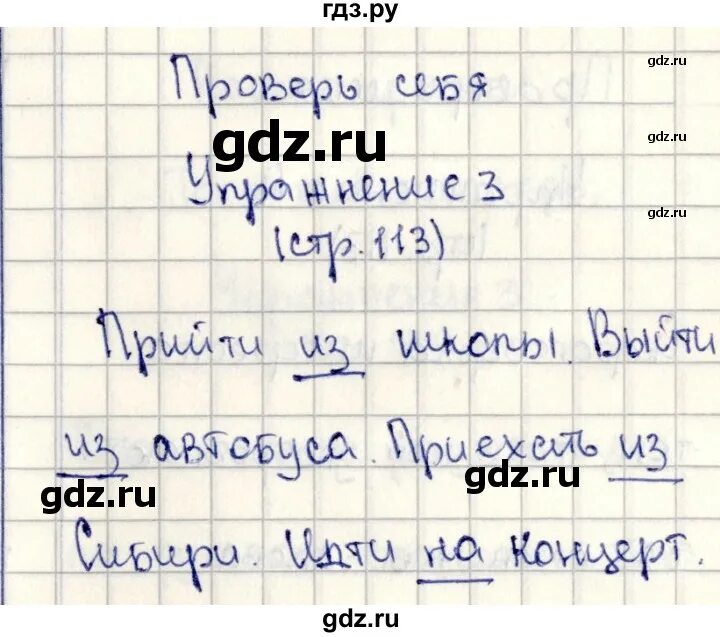 гдз.ру
Проверь себя
gdz.ru
gdz.ru
gdz.ru
Упражнение 3
gdz.ru
(стр. 113)
Прийти из школы. Выйти
из автобуса. Приехать из
gdz.ru
gdz.ru
Сибири. Идти на концерт.
gdz.ru